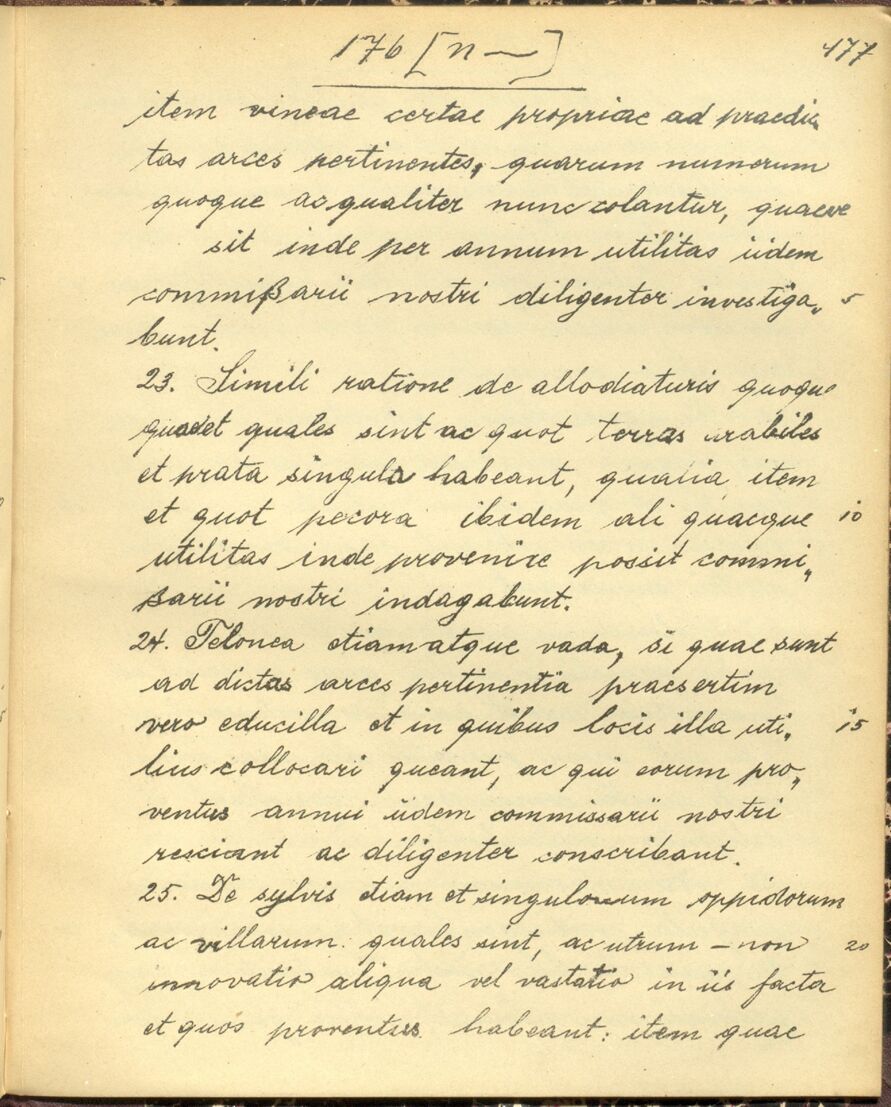 176 [n —]
177
item vineae certae propriae ad praedic„
tas arces pertinentes, quarum numerum
quoque aequaliter nunc colantur, quaeve
sit inde per annum utilitas iidem
commißarii nostri diligenter investiga„ 5
bunt.
23. Simili ratione de allodiaturis quoque
quot et quales sint ac quot terras arabiles
et prata singula habeant, qualia item
et quot pecora ibidem ali quaeque 10
utilitas inde provenire possit commi„
ßarii nostri indagabunt.
24. Telonea etiam atque vada, si quae sunt
ad dictas arces pertinentia praesertim
vero educilla et in quibus locis illa uti„ 15
lius collocari queant, ac qui eorum pro„
ventus annui iidem commissarii nostri
resciant ac diligenter conscribant.
25. De sylvis etiam et singulorum oppidorum
ac villarum quales sint, ac utrum – non 20
innovatio aliqua vel vastatio in iis facta
et quos proventus habeant: item quae